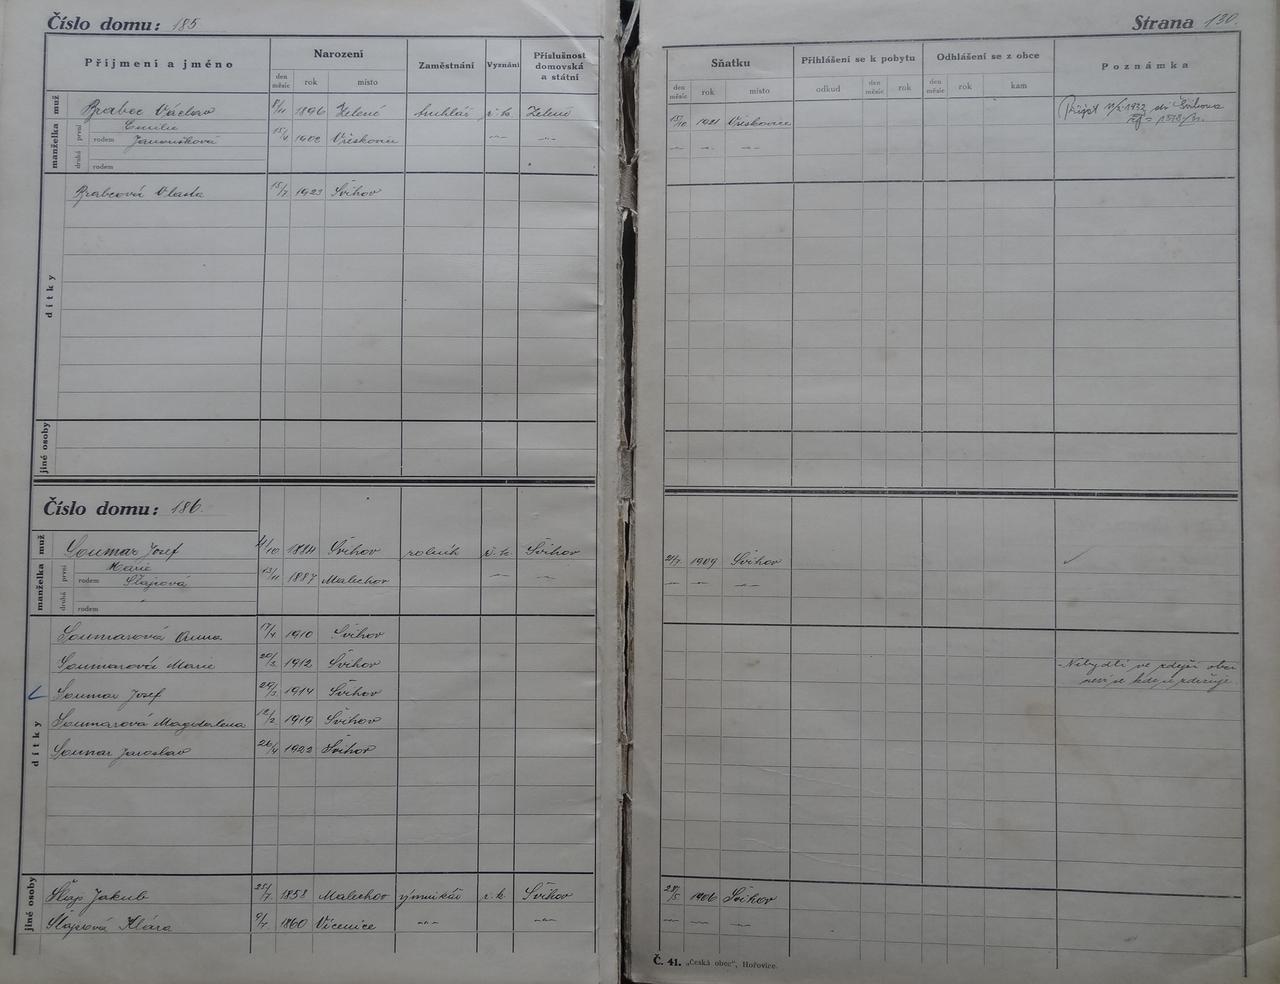 Číslo domu: 185
Strana 130.
Příjmení a jméno
Narození
den měsíc
rok
místo
Zaměstnání
Vyznání
Příslušnost domovská a státní
Sňatku
den měsíc
rok
místo
Přihlášení se k pobytu
odkud
den měsíc
rok
Odhlášení se z obce
den měsíc
rok
kam
Poznámka
muž
Brabec Václav 8/11 1896 Zelené truhlář ř. k. Zelené
15/10 1921 Vřeskovice
1932 do Švihova
manželka
první
Emilie
rodem Janoušková 15/4 1902 Vřeskovice
druhá
rodem
dítky
Brabcová Vlasta 15/7 1923 Švihov
jiné osoby
Číslo domu: 186.
muž
Soumar Josef 4/10 1884 Švihov rolník ř. k. Švihov
21/7 1909 Švihov
manželka
první
Marie
rodem Šlajsová 13/11 1887 Malechov
druhá
rodem
dítky
Soumarová Anna 17/4 1910 Švihov
Soumarová Marie 20/2 1912 Švihov
Nebydlí ve zdejší obci
neví se kde se zdržuje.
Soumar Josef 29/3 1914 Švihov
Soumarová Magdalena 12/2 1919 Švihov
Soumar Jaroslav 26/4 1922 Švihov
jiné osoby
Šlajs Jakub 25/7 1858 Malechov výminkář ř. k. Švihov
28/5 1906 Švihov
Šlajsová Klára 9/7 1860 Vícenice
Č. 41. „Česká obec“, Hořovice.